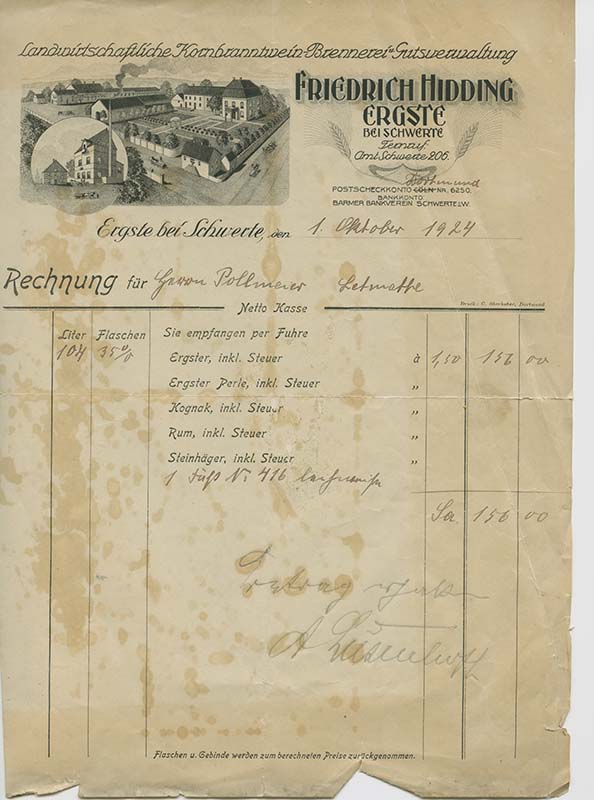 Landwirtschaftliche Kornbranntwein-Brennerei u. Gutsverwaltung
FRIEDRICH HIDDING
ERGSTE
BEI SCHWERTE
Fernruf:
Amt Schwerte 206.
Dortmund
POSTSCHECKKONTO CÖLN NR. 6250.
BANKKONTO:
BARMER BANKVEREIN SCHWERTE I.W.
Ergste bei Schwerte, den 1. Oktober 1924
Rechnung für Herrn Pollmeier Letmathe
Netto Kasse
Druck: C. Dortmund
Liter Flaschen Sie empfangen per Fuhre
104 35% Ergster, inkl. Steuer à 1,50 156 00
Ergster Perle, inkl. Steuer „
Kognak, inkl. Steuer „
Rum, inkl. Steuer „
Steinhäger, inkl. Steuer „
1 Faß No 416 leihweise
Sa. 156 00
Betrag erhalten
A
Flaschen u. Gebinde werden zum berechneten Preise zurückgenommen.